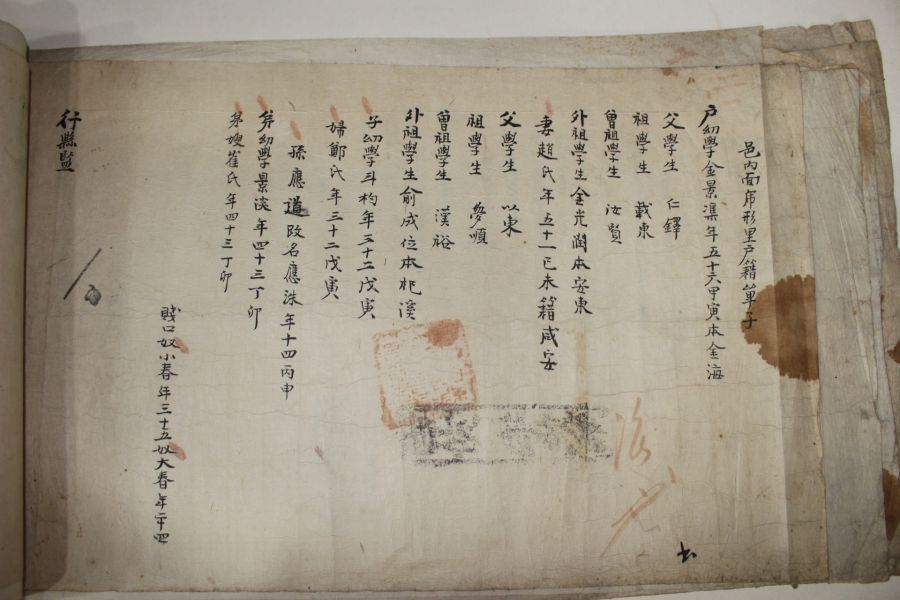 邑內面 形里戶籍單子
戶幼學金景 年五十六甲寅本金海
父學生 仁鐸
祖學生 載東
曾祖學生 汝賢
外祖學生金光潤本安東
妻趙氏年五十一己未籍咸安
父學生 以東
祖學生 夢順
曾祖學生 漢裕
外祖學生俞成位本杞溪
子幼學斗杓年三十二戊寅
婦鄭氏年三十二戊寅
孫應道改名應洙年十四丙申
弟幼學景淡年四十三丁卯
弟嫂崔氏年四十三丁卯
賤口奴小春年三十五奴大春年二十四
行縣監